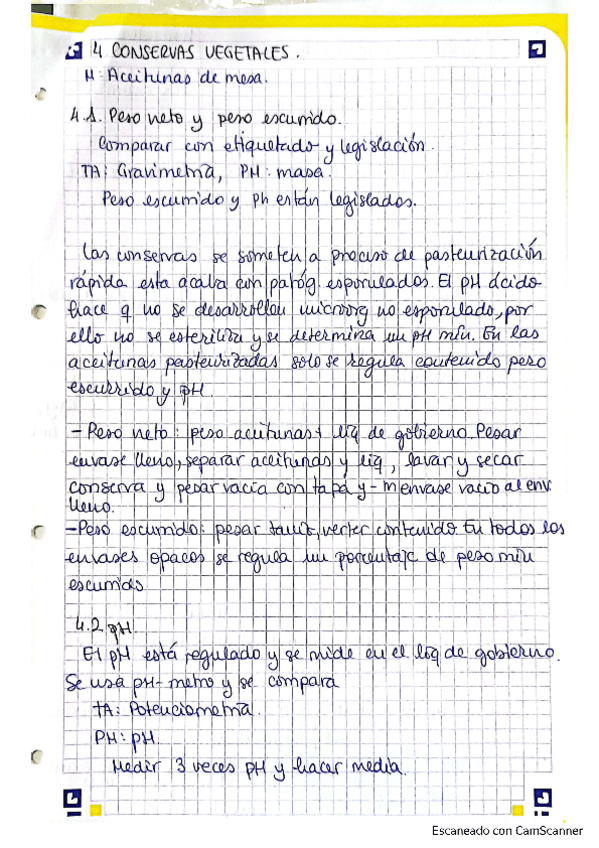 4. CONSERVAS VEGETALES.
M: Aceitunas de mesa.
4.1. Peso neto y peso escurrido.
Comparar con etiquetado y legislación.
TA: Gravimetría, PM: masa.
Peso escurrido y Ph están legislados.
Las conservas se someten a proceso de pasteurización
rápida esta acaba con patóg esporulados. El pH ácido
hace q no se desarrollen microorg no esporulado, por
ello no se esteriliza y se determina un pH mín. En las
aceitunas pasteurizadas solo se regula contenido peso
escurrido y pH.
- Peso neto: peso aceitunas + líq de gobierno. Pesar
envase lleno, separar aceitunas y liq, lavar y secar
conserva y pesar vacía con tapa y - m envase vacío al env
lleno.
- Peso escurrido: pesar tamiz, verter contenido. En todos los
envases opacos se regula un porcentaje de peso mín
escurrido
4.2 pH.
El pH está regulado y se mide en el líq de gobierno.
Se usa pH-metro y se compara
TA: Potenciometría.
PM: pH.
Medir 3 veces pH y hacer media.
Escaneado con CamScanner